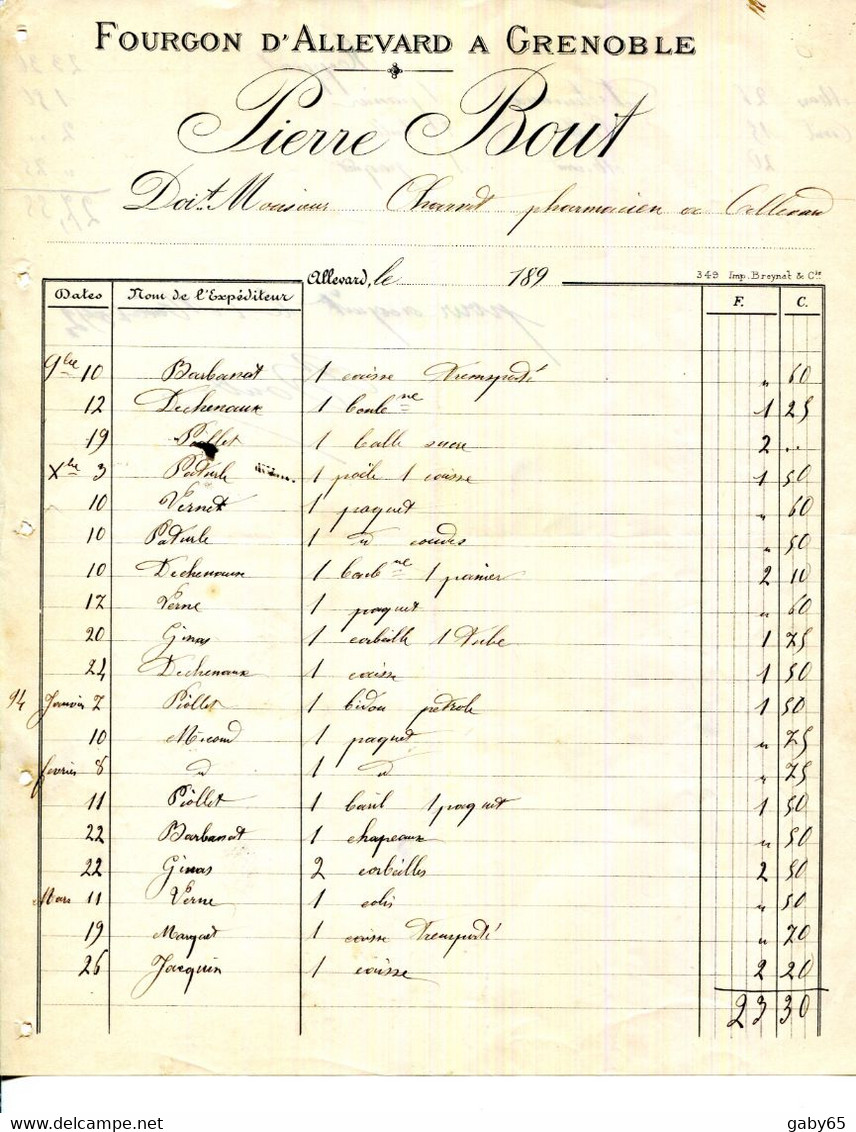 FOURGON D'ALLEVARD A GRENOBLE
Pierre Bout
Doit Monsieur Charrut pharmacien a Allevard
349 Imp. Breynat & Cie
Allevard, le 189
Dates Nom de l'Expéditeur F. C.
9bre 10 Barbanat 1 caisse Transporté " 60
12 Dechenaux 1 bonbne 1 25
19 Piollet 1 balle sucre 2 ..
Xbre 3 Paturle 1 poële 1 caisse 1 50
10 Vernet 1 paquet " 60
10 Paturle 1 d coudes " 50
10 Dechenaux 1 bonbne 1 panier 2 10
17 Verne 1 paquet " 60
20 Ginas 1 corbeille 1 Tube 1 75
24 Dechenaux 1 caisse 1 50
94 Janvier 7 Piollet 1 bidon petrole 1 50
10 Micoud 1 paquet " 75
fevrier 8 d 1 d " 75
11 Piollet 1 baril 1 paquet 1 50
22 Barbanat 1 chapeaux " 50
22 Ginas 2 corbeilles 2 50
Mars 11 Verne 1 colis " 50
19 Marquet 1 caisse Transporté " 70
26 Jacquin 1 caisse 2 20
23 30
gaby65